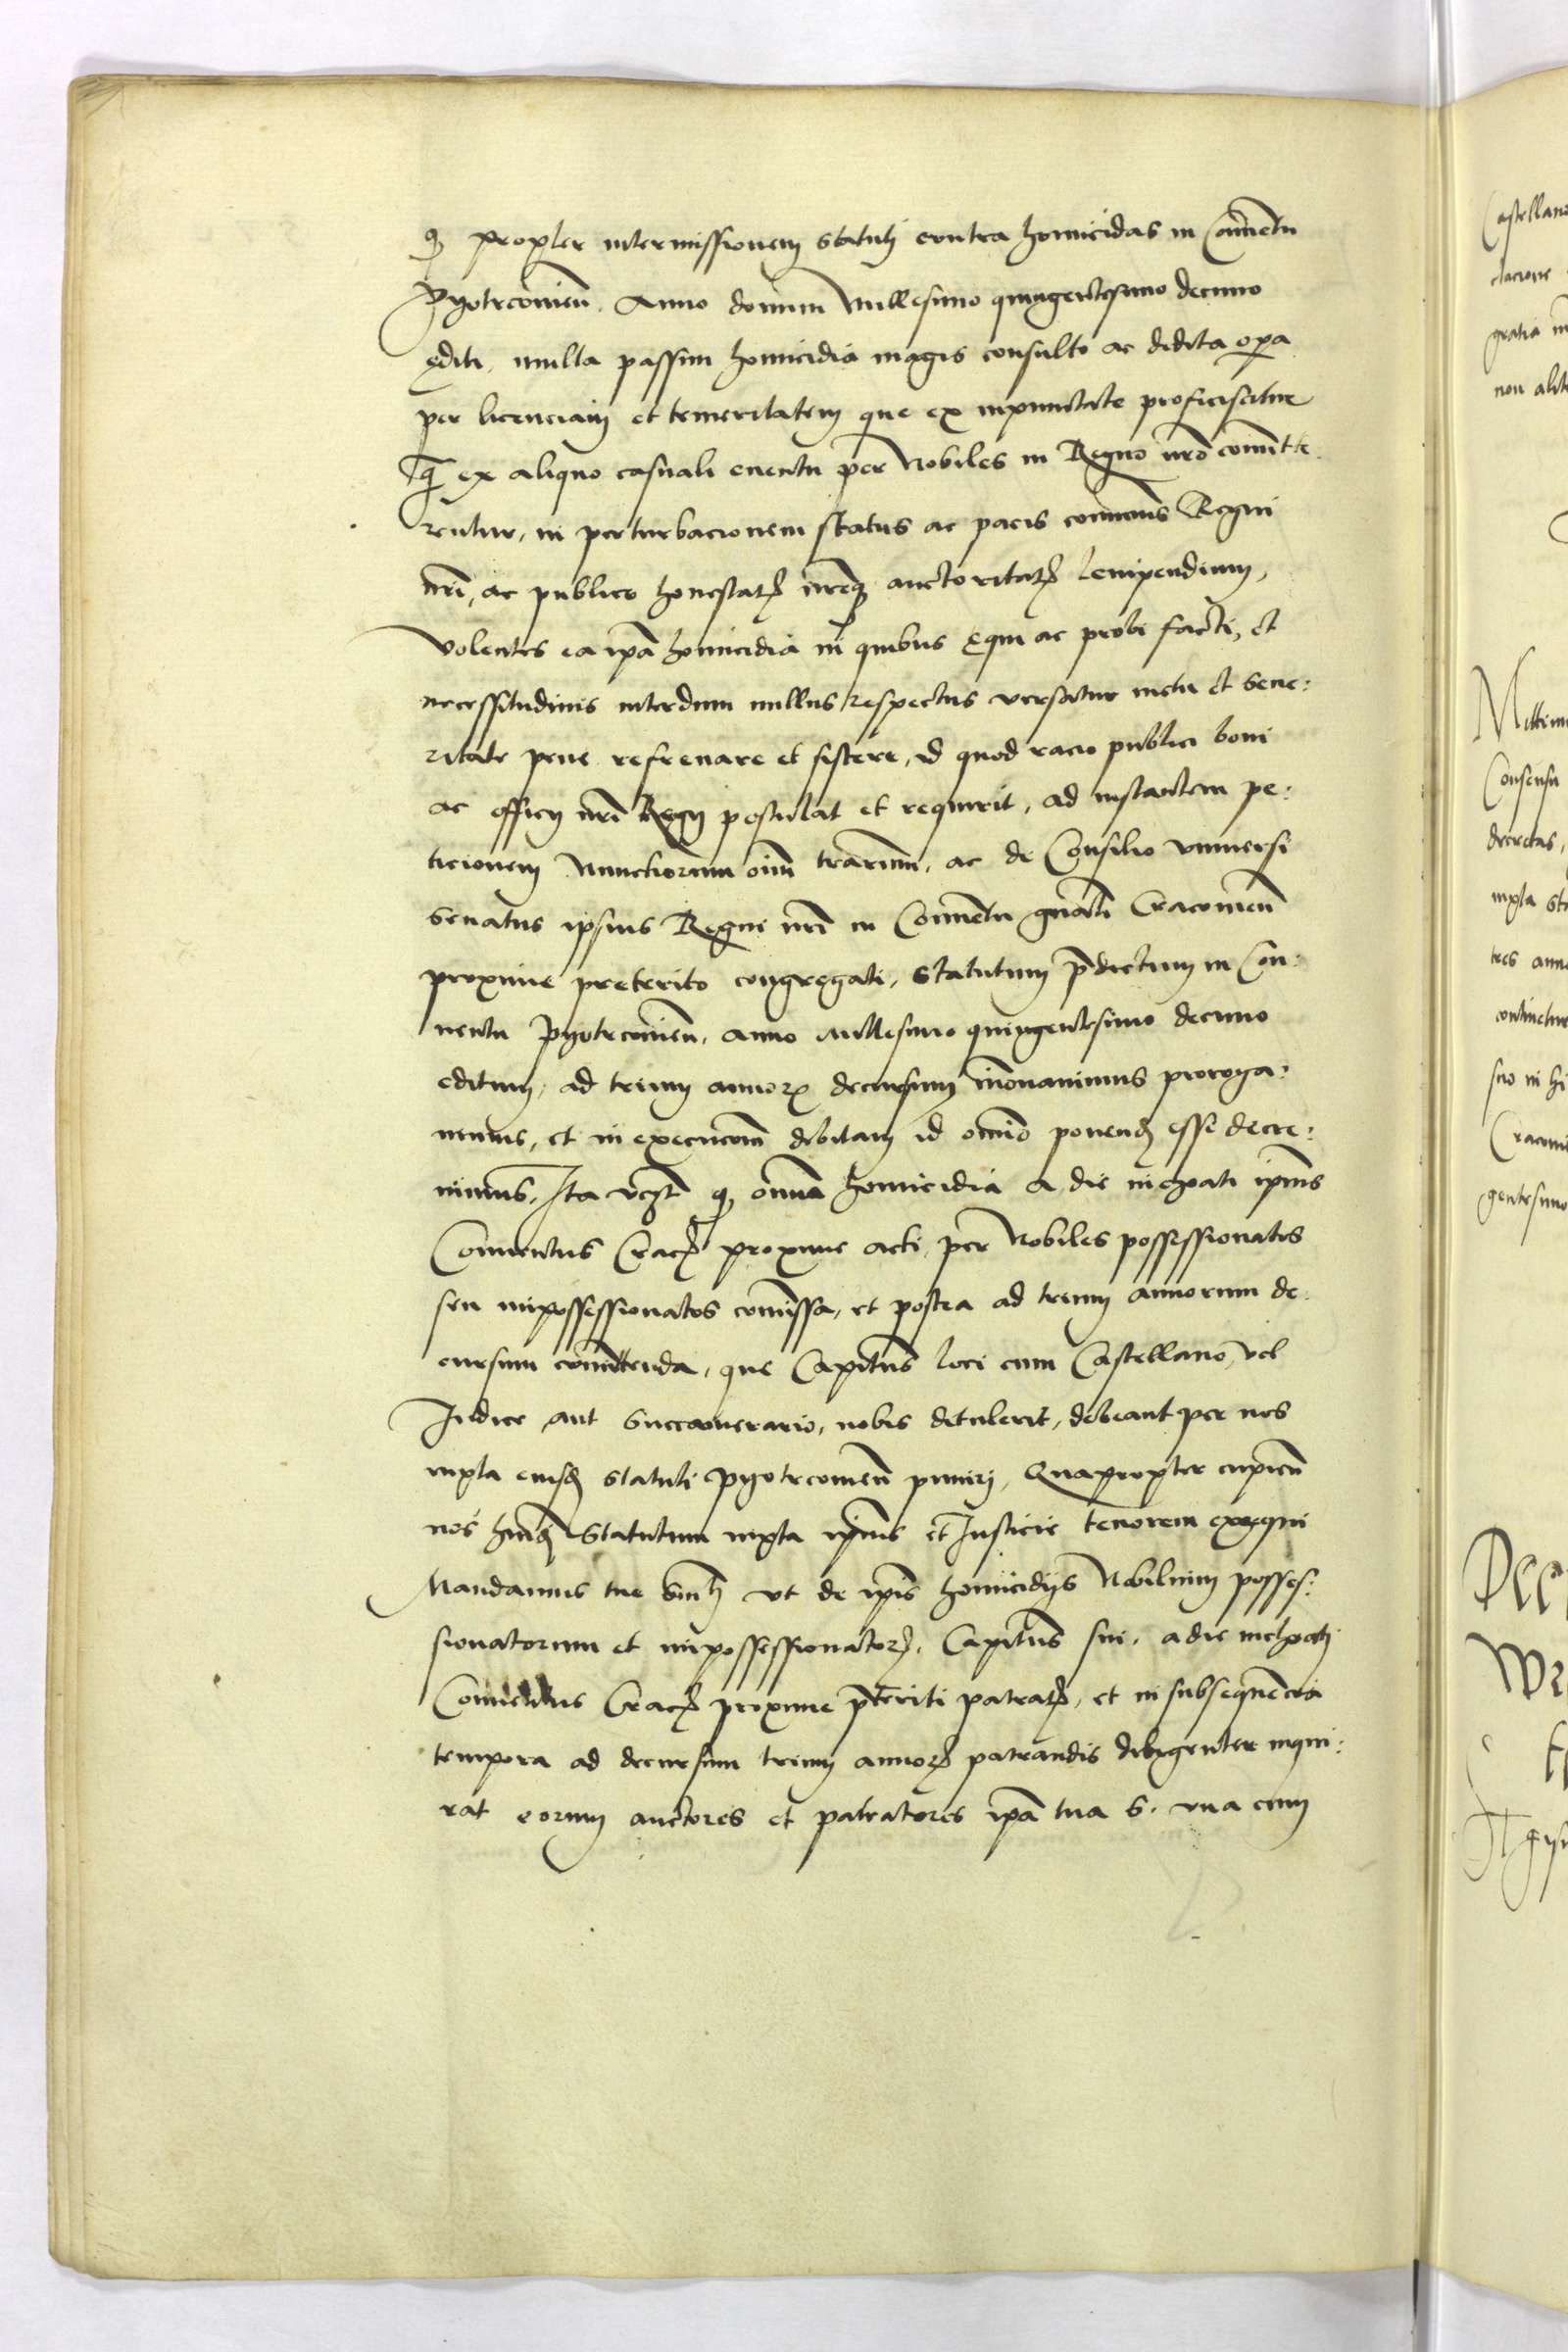 ꝙ propter intermissionem statuti contra homicidas in Conventu
Pyotrcovien̄. Anno domini Millesimo quingentesimo decimo
editi, multa passim homicidia magis consulto ac dedita op̄a
per licenciam et temeritatem que ex impunitate proficiscitur
q̄ ex aliquo casuali eventu per Nobiles in Regno nr̄o com̄itte
rentur, in perturbacionem status ac pacis com̄unis Regni
nr̄i, ac publice honestatꝭ nr̄eqꝫ auctoritatꝭ levipendium,
Volentes ea ip̄a homicidia in quibus equi ac probi facti, et
necessitudinis interdum nullus respectus versatur metu et seve:
ritate pene refrenare et sistere, id quod racio publici boni
ac officij nr̄i Regij postulat et requirit, ad instantem pe:
ticionem Nuncciorum oīm trārum, ac de Consilio universi
Senatus ipsius Regni nr̄i in Conventu gn̄ali Cracovien̄
proxime preterito congregati, Statutum p̄dictum in Con:
ventu Pyotrcovien̄. anno Millesimo quingentesimo decimo
editum, ad trium annoꝝ decursum in̄ovavimus proroga:
vimus, et in execucōm debitam id om̄ino ponendꝭ esse decre:
vimus, Ita vꝫ ꝙ omnia homicidia a die inchoati ip̄ius
Conventus Cracꝭ proxime acti per Nobiles possessionatos
seu impossessionatos com̄issa, et postea ad trium annorum de
cursum com̄ittenda, que Capit̄us loci cum Castellano, vel
Judice aut Succamerario, nobis detulerit, debeant per nos
iuxta eiusdꝭ statuti Pyotrcovien̄ puniri, Quapropter cupien̄
nos hm̄oi Statutum iuxta ip̄ius et Justicie tenorem exequi
Mandamus tue Sin̄ti ut de ip̄is homicidijs Nobilium posses:
sionatorum et impossessionatoꝝ, Capit̄us sui, a die inchoati
Conventus Cracꝭ proxime p̄teriti patratꝭ, et in subsequencia
tempora ad decursum trium annoꝝ patrandis diligenter inqui:
rat eorum auctores et patratores ip̄a tua S. una cum